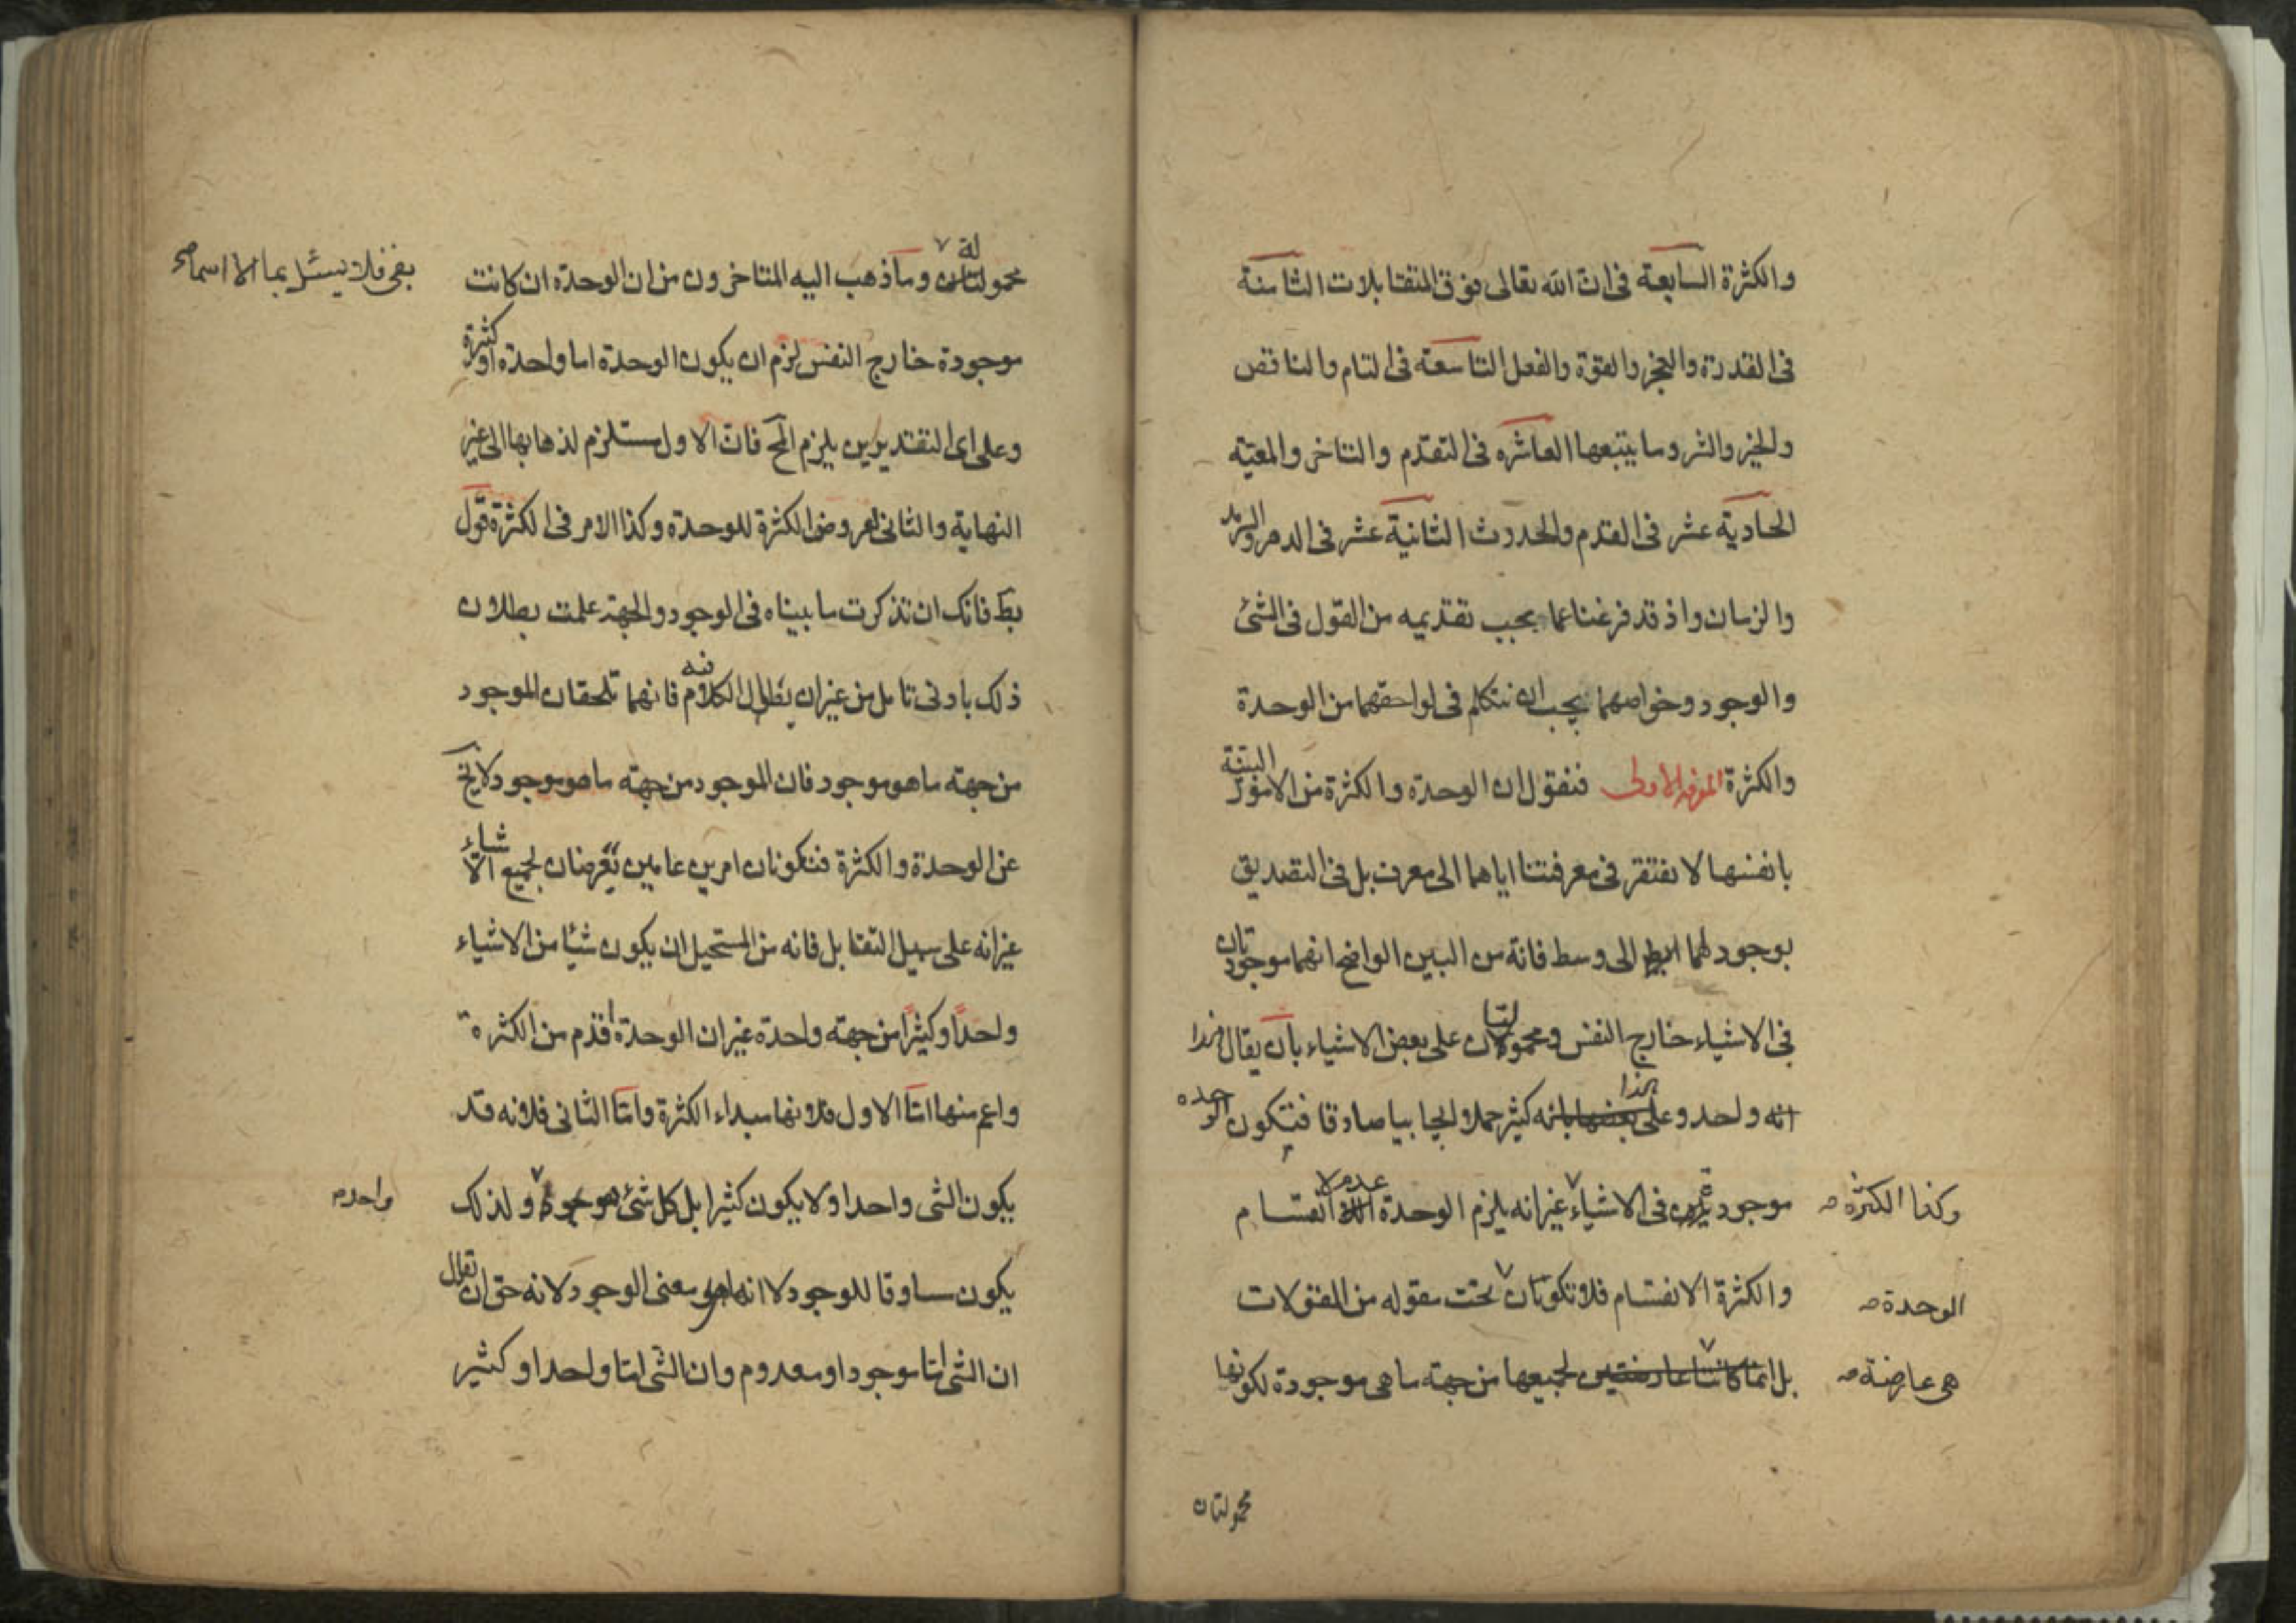 والكثرة السابعة فى ان الله تعالى فوق المتقابلات الثامنة
فى القدرة والعجز والقوة والفعل التاسعة فى التام والناقص
والخير والشر وما يتبعها العاشره فى التقدم والتاخر والمعيّه
الحادية عشر فى القدم والحدوث الثانية عشر فى الدهر والسرمد
والزمان واذ قد فرغنا عما يجب تقديمه من القول فى الشئ
والوجود وخواصهما يجب ان نتكلم فى لواحقهما من الوحدة
والكثرة الغرفه الاولى فنقول ان الوحدة والكثرة من الامور البيّنة
بانفسها لا نفتقر فى معرفتنا اياهما الى معرف بل فى التصديق
بوجودهما ايضا الى وسط فانه من البين الواضح انهما موجودتان
فى الاشياء خارج النفس ومحمولتان على بعض الاشياء بان يقال هذا
انه واحد وعلى هذا بعضها بانه كثير حملا ايجابيا صادقا فيكون الوحده
موجودة فى الاشياء غير انه يلزم الوحدة عدم الانقسام
وكذا الكثره
والكثرة الانقسام فلا تكونان تحت مقوله من المقولات
الوحدة
بل انما كانتا عارضتين لجميعها من جهته ما هى موجودة لكونها
هى عارضة
محمولتان
محمولة وما ذهب اليه المتاخرون من ان الوحدة ان كانت
بقى فلا يسئل بما الا اسماء
موجودة خارج النفس لزم ان يكون الوحدة اما واحدة او كثيرة
وعلى اى التقديرين يلزم المح فان الاول مستلزم لذهابها الى غير
النهاية والثانى لعروض الكثرة للوحدة وكذا الامر فى الكثرة قول
بط فانك ان تذكرت ما بيناه فى الوجود والجهة علمت بطلان
ذلك بادنى تامل من غير ان يطال الكلام فيه فانهما تلحقان الموجود
من جهته ما هو موجود فان الموجود من جهته ما هو موجود لا يخ
عن الوحدة والكثرة فتكونان امرين عامين تعرضان لجميع الاشياء
غير انه على سبيل التقابل فانه من المستحيل ان يكون شيئا من الاشياء
واحدًا وكثيرًا من جهته واحدة غير ان الوحدة اقدم من الكثرة
واعم منها امّا الاول فلانها مبداء الكثرة وامّا الثانى فلانه قد
يكون الشى واحدا ولا يكون كثيرا بل كل شئ موجود ولذلك
واحد
يكون مساوقا للوجود لا انه هو معنى الوجود لانه حق ان تقال
ان الشى امّا موجود او معدوم وان الشى امّا واحد او كثير